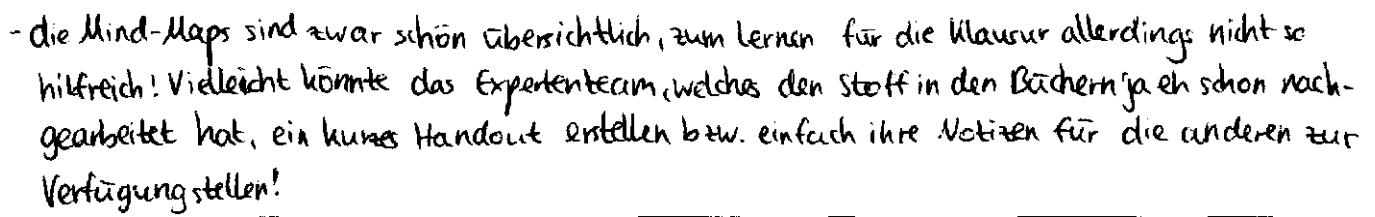 - die Mind-Maps sind zwar schön übersichtlich, zum Lernen für die Klausur allerdings nicht so
hilfreich! Vielleicht könnte das Expertenteam, welches den Stoff in den Büchern ja eh schon nach-
gearbeitet hat, ein kurzes Handout erstellen bzw. einfach ihre Notizen für die anderen zur
Verfügung stellen!